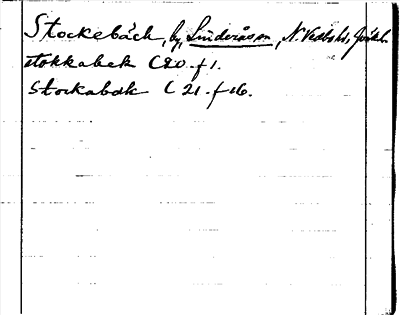 Stockebäck, by, Linderåsen, N. Vedbohd, Jönk.
stokkabek C 20. f 1.
Stockabäk C 21. f 16.